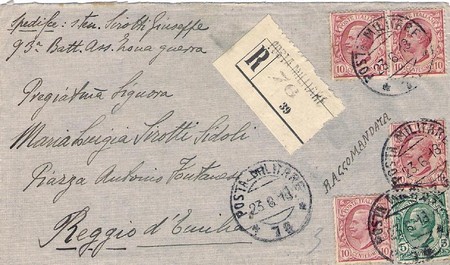 Spedisce: s. ten. Sirotti Giuseppe
93ª Batt. Ass. zona guerra
R
POSTA MILITARE
76
39
Pregiatma Signora
Maria Luigia Sirotti Sidoli
Piazza Antonio Fontanesi
Reggio d'Emilia
RACCOMANDATA
POSTA MILITARE
23.6.18
POSTA MILITARE
23.6.18
POSTA MILITARE
23.6.18
POSTE ITALIANE
10
10
10
10
5